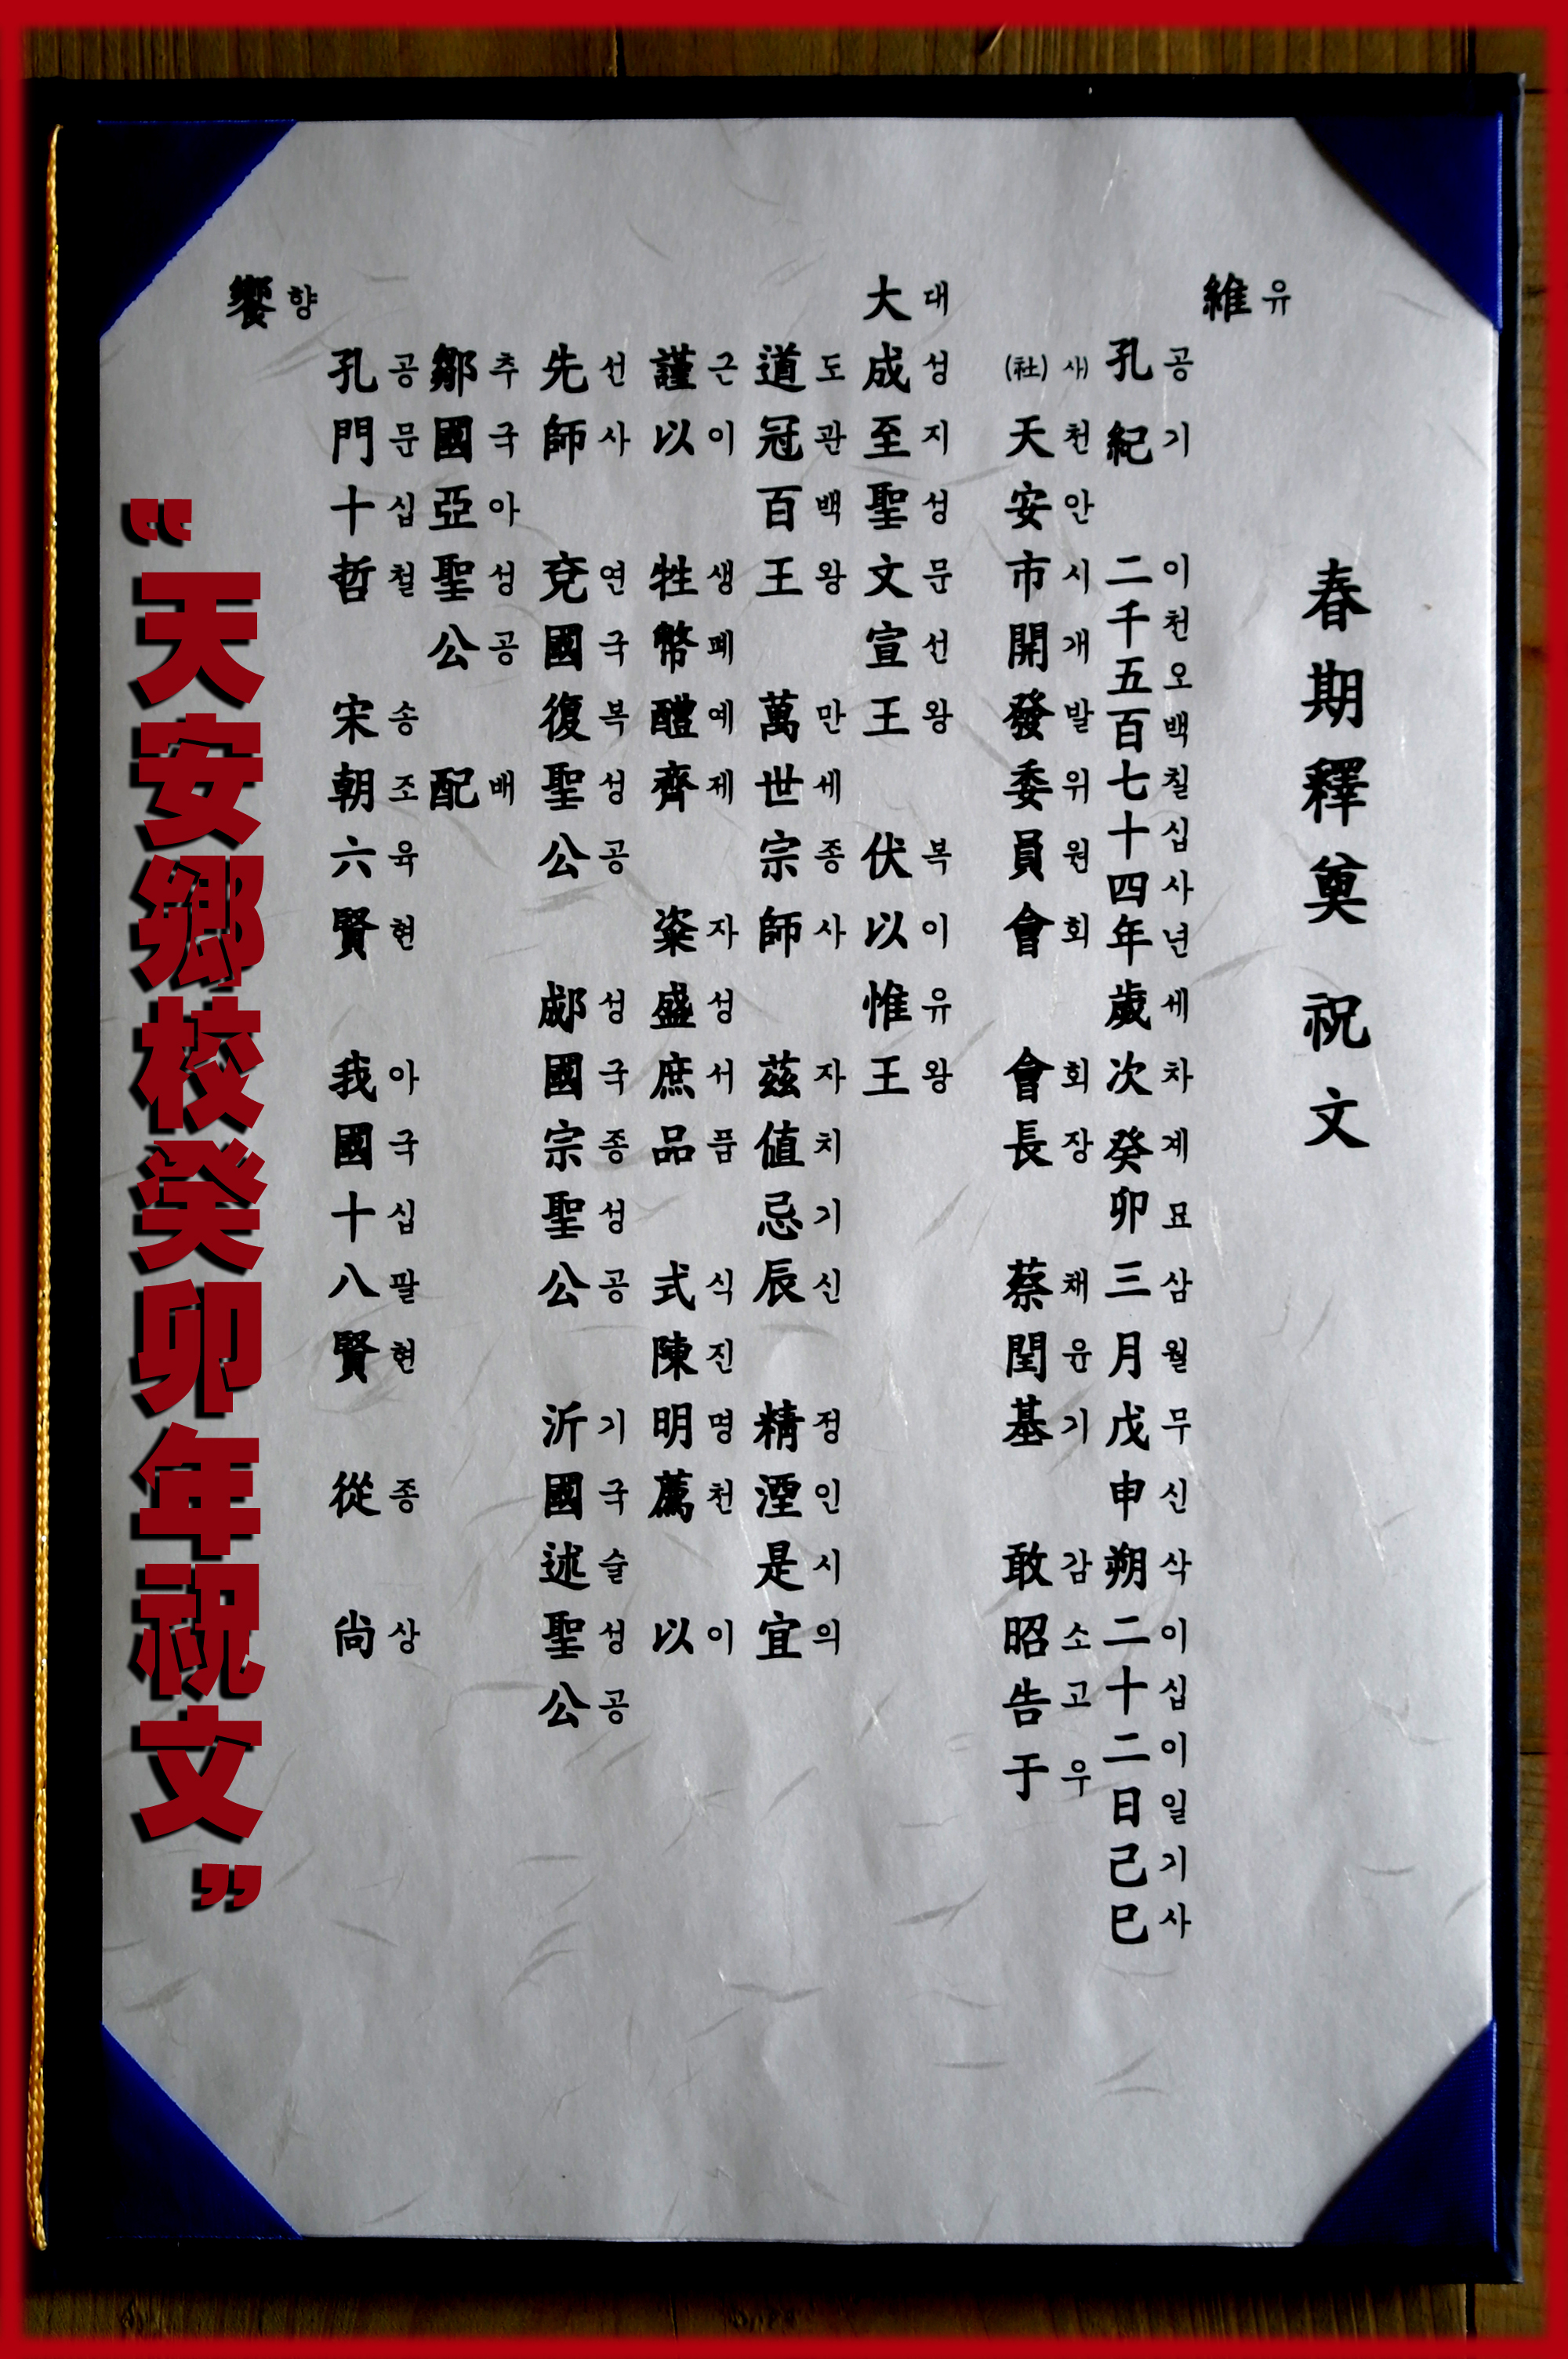 春期釋奠 祝文
維 유
孔紀 二千五百七十四年歲次癸卯三月戊申朔二十二日己巳
공기 이천오백칠십사년세차계묘삼월무신삭이십이일기사
(社)天安市開發委員會 會長 蔡閏基 敢昭告于
사)천안시개발위원회 회장 채윤기 감소고우
大成至聖文宣王 伏以惟王
대성지성문선왕 복이유왕
道冠百王 萬世宗師 茲値忌辰 精湮是宜
도관백왕 만세종사 자치기신 정인시의
謹以 牲幣醴齊 粢盛庶品 式陳明薦 以
근이 생폐예제 자성서품 식진명천 이
先師 兗國復聖公 郕國宗聖公 沂國述聖公
선사 연국복성공 성국종성공 기국술성공
鄒國亞聖公 配
추국아성공 배
孔門十哲 宋朝六賢 我國十八賢 從 尙
공문십철 송조육현 아국십팔현 종 상
饗 향
“天安鄕校癸卯年祝文”